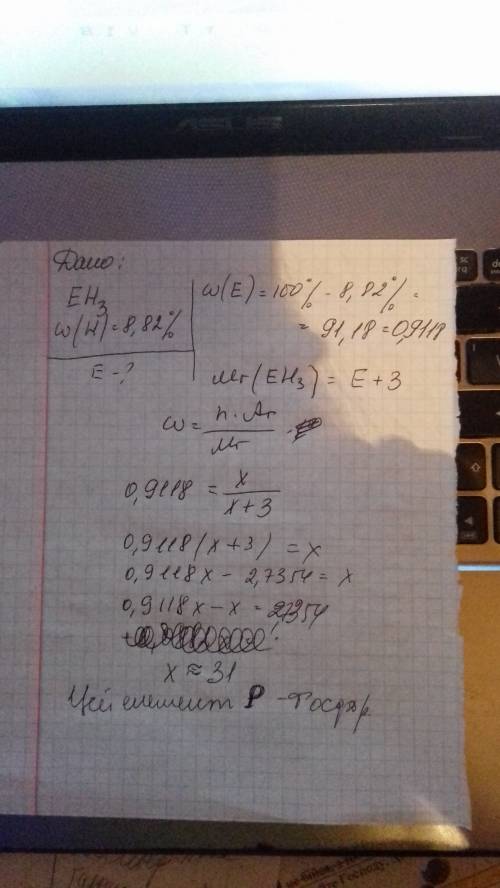 ASUS
Дано:
EH₃
ω(H)=8,82%
E-?
ω(E)=100%-8,82%=
=91,18=0,9118
Mr(EH₃)= E+3
ω= n·Ar/Mr
0,9118 = x/x+3
0,9118(x+3)=x
0,9118x- 2,7354=x
0,9118x-x=2,7354
x≈31
Цей елемент P -Фосфор